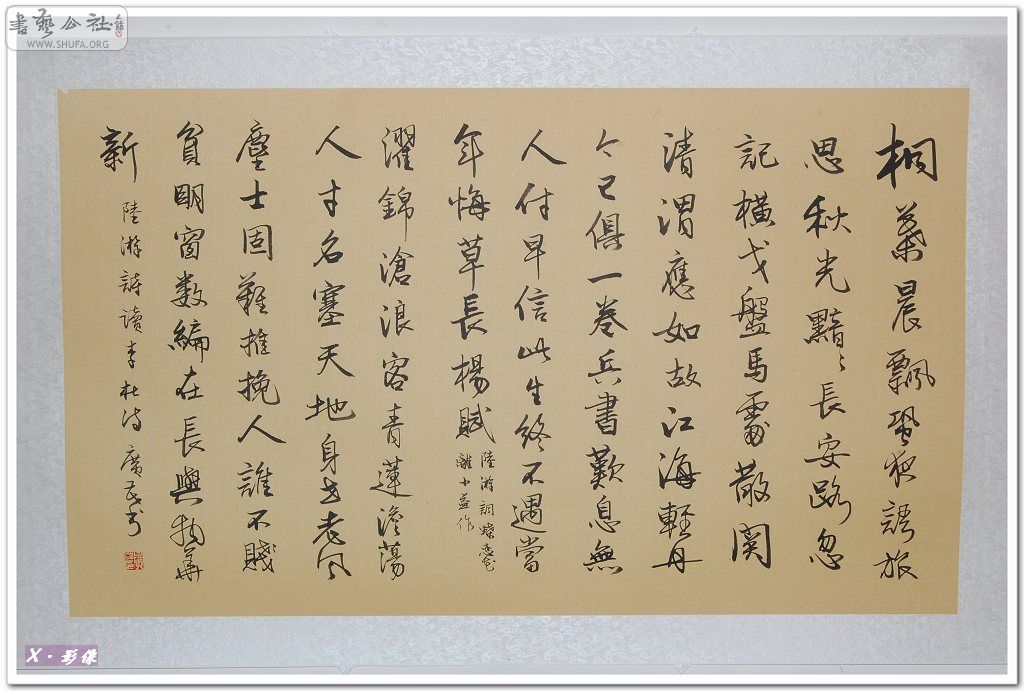 書藝公社
WWW.SHUFA.ORG
桐葉晨飄蛩夜語旅
思秋光黯〻長安路忽
記橫戈盤馬處散關
清渭應如故江海輕舟
今已俱一卷兵書歎息無
人付早信此生終不遇當
年悔草長楊賦
陸游詞蝶恋花
離小益作
濯錦滄浪客青蓮澹蕩
人才名塞天地身世老風
塵士固難推挽人誰不賤
貧明窗数編在長與物華
新
陸游詩讀李杜诗
X·影像